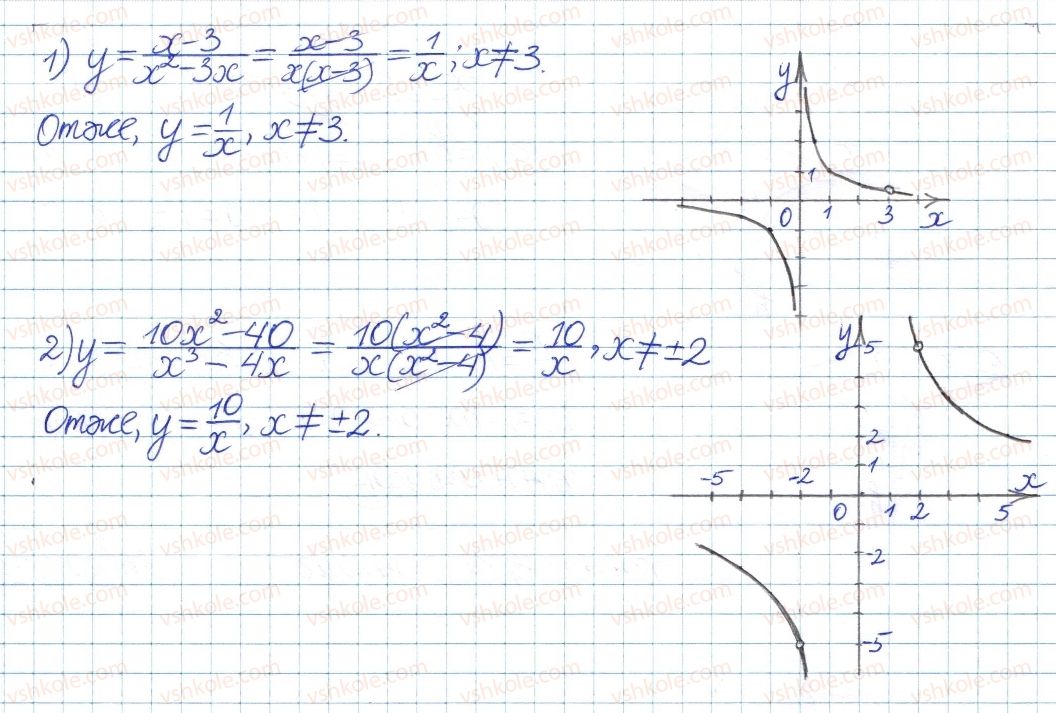 1) y = (x-3)/(x²-3x) = (x-3)/(x(x-3)) = 1/x; x≠3.
Отже, y = 1/x, x≠3.
y
1
0 1 3 x
2) y = (10x²-40)/(x³-4x) = (10(x²-4))/(x(x²-4)) = 10/x, x≠±2
Отже, y = 10/x, x≠±2.
y 5
2
1
-5 -2 x
0 1 2 5
-2
-5
vshkole.com